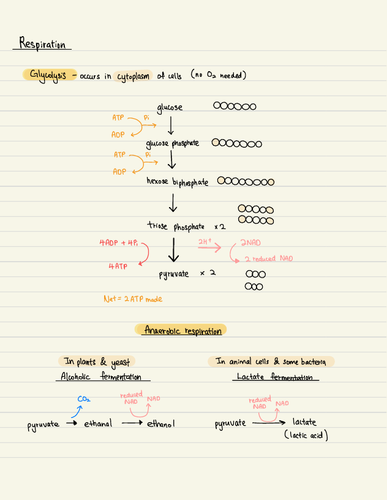 Respiration
Glycolysis – occurs in cytoplasm of cells (no O2 needed)
glucose
ATP Pi
ADP
glucose phosphate
ATP Pi
ADP
hexose biphosphate
triose phosphate x 2
4ADP + 4Pi 2H+ 2NAD
4ATP 2 reduced NAD
pyruvate x 2
Net = 2ATP made
Anaerobic respiration
In plants & yeast
Alcoholic fermentation
CO2 reduced NAD NAD
pyruvate → ethanal → ethanol
In animal cells & some bacteria
Lactate fermentation
reduced NAD NAD
pyruvate → lactate
(lactic acid)